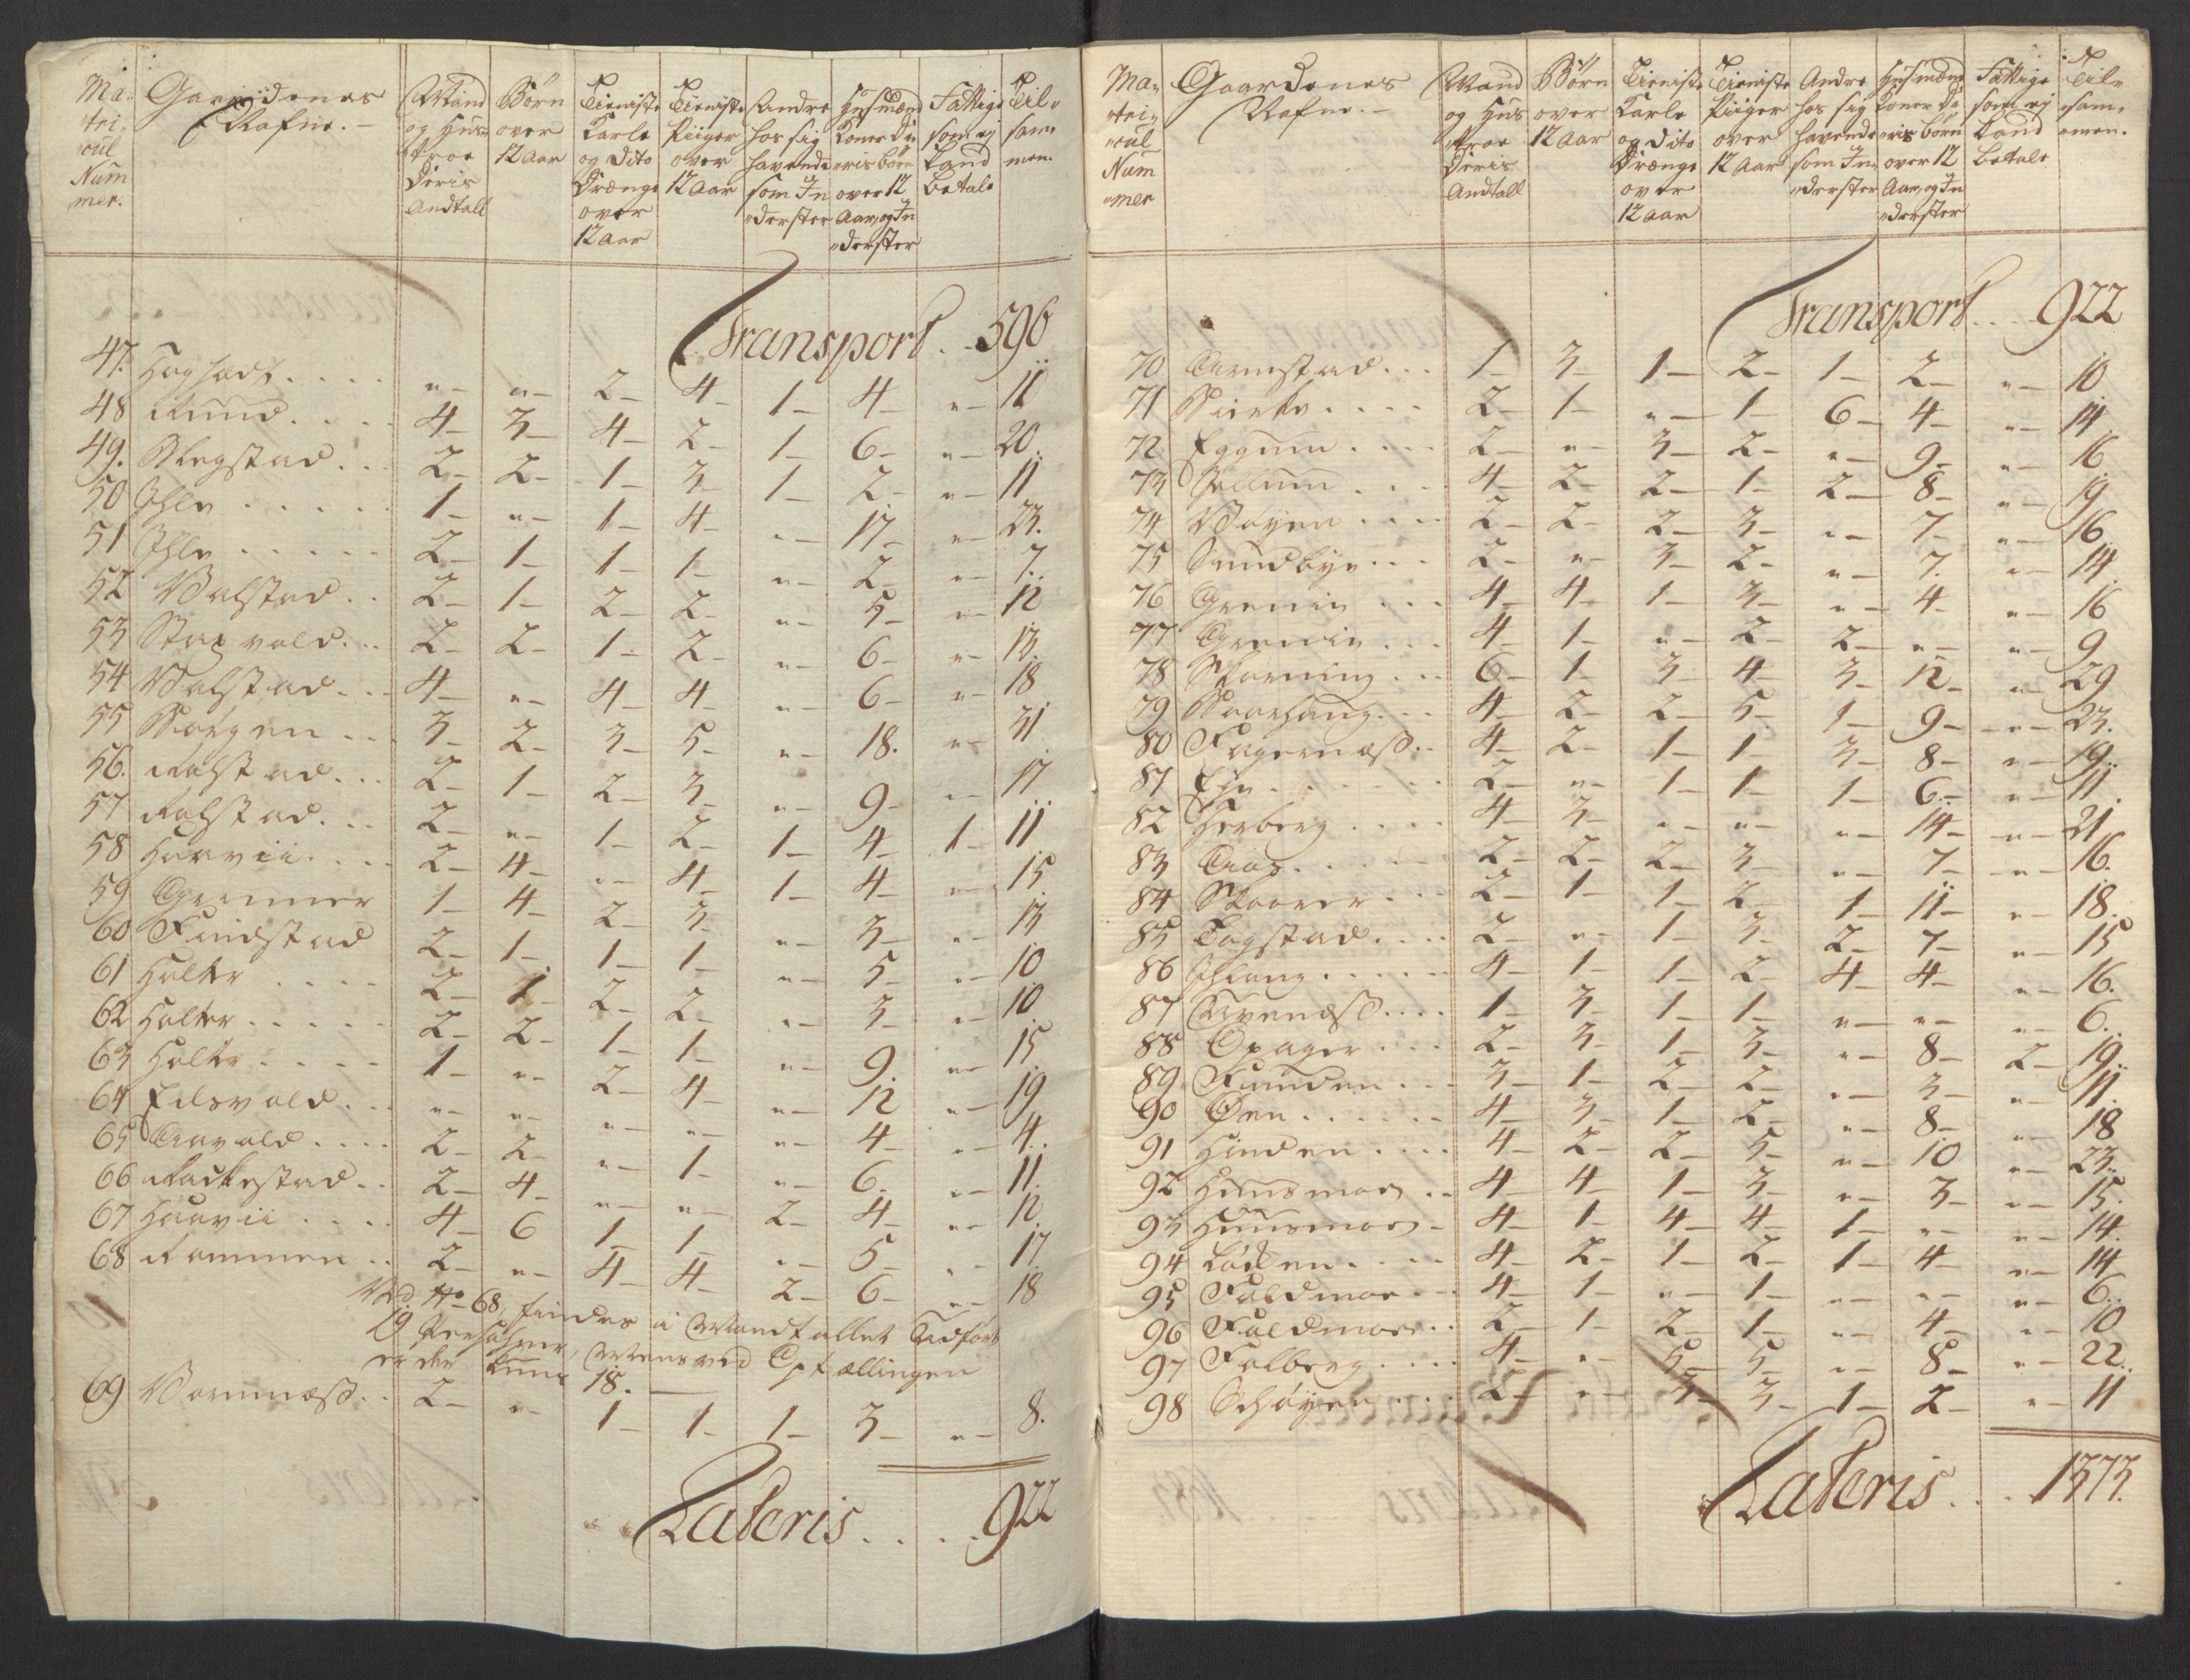 Ma- Gaardenes Mand Børn Tieniste Tieniste Andre Husmænd Fattige Til-
tri- Nafne.- og Hus- over Karle Piiger hos sig Koner De- som ej sam-
cul troe 12 Aar og Dito over havende eris børn Land men.
Num Deris Drænge 12 Aar som In- over 12 betale
mer. Andtall over derster Aar, og In
12 Aar derster
Transport . . 596
47. Hoghads . . . . " - " - 2 - 4 - 1 - 4 - " - 11
48 Rund . . . . 4 - 3 - 4 - 2 - 1 - 6 - " - 20
49. Blegstad . . . 2 - 2 - 1 - 3 - 1 - 2 - " - 11
50 Ihle . . . . . 1 - " - 1 - 4 - " - 17 - " - 23.
51 Ihle . . . . . 2 - 1 - 1 - 1 - " - 2 - " - 7.
52 Walstad . . 2 - 1 - 2 - 2 - " - 5 - " - 12
53 Stapvold . . . 2 - 2 - 1 - 2 - " - 6 - " - 13.
54 Walstad . . . 4 - " - 4 - 4 - " - 6 - " - 18
55 Borgen . . . 3 - 2 - 3 - 5 - " - 18. " - 31
56. Kolstad . . . 2 - 1 - 2 - 3 - " - 9 - " - 17
57 Kolstad . . . 2 - " - 1 - 2 - 1 - 4 - 1 - 11
58 Haavii . . . . 2 - 4 - " - 4 - 1 - 4 - " - 15
59 Grimmer 1 - 4 - 2 - 3 - " - 3 - " - 13
60 Findstad 2 - 1 - 1 - 1 - " - 5 - " - 10
61 Holter . . . . 2 - 1 - 2 - 2 - " - 3 - " - 10
62 Holter . . . . . 2 - 2 - 1 - 1 - " - 9 - " - 15
63 Holte . . . . . 1 - " - 2 - 4 - " - 12 " - 19
64 Eidsvold . . . " - " - " - " - " - 4 - " - 4.
65 Aavold . . . . 2 - 2 - " - 1 - " - 6 - " - 11.
66 Rackestad . . 2 - 4 - " - " - 2 - 4 - " - 12
67 Haavii . . . . 4 - 6 1 - 1 - " - 5 - " - 17.
68 Rommen . . 2 - " - 4 - 4 - 2 - 6 - " - 18
Ved No 68, findes i Mandtallet Tilført
19 Persohner, Mens ved Optællingen
er der kuns 18. —
69 Wormnæss . . 2 - " - 1 - 1 - 1 - 3 - " - 8.
Lateris . . . . 922
Ma- Gaardenes Mand Børn Tieniste Tieniste Andre Husmænd Fattige Til-
tri- Nafne.- og Hus over Karle Piiger hos sig Koner De som ej sam-
cul troe 12 Aar og dito over havende eris børn Land men.
Num Deris Drænge 12 Aar som In- over 12 betale
mer Andtall over derster Aar, og In
12 Aar derster
Transport . . . 922
70 Arnestad . . . 1 - 3 - 1 - 2 - 1 - 2 - " - 10
71 . . . . 2 - 1 - " - 1 - 6 - 4 - " - 14
72 Eggum . . . . 2 - " - 3 - 2 - " - 9 - " - 16
73 Sellum . . . 4 - 2 - 2 - 1 - 2 - 8 - " - 19
74 Wøyen . . . . 2 - 2 - 2 - 3 - " - 7 - " - 16
75 Sundbye . . . 2 - " - 3 - 2 - " - 7. " - 14
76 Grenin . . . 4 - 4 - 1 - 3 - " - 4 - " - 16
77 Grenin . . . 4 - 1 - " - 2 - 2 - " - " - 9
78 Horning . . . 6 - 1 - 3 - 4 - 3 - 12 - " - 29
79 Baarhaug . . . 4 - 2 - 2 - 5 - 1 - 9 - " - 23.
80 Fagernæss . . 4 - 2 - 1 - 1 - 3 - 8 - " - 19.
81 Ege . . . . . . 2 - " - 1 - 1 - 1 - 6 - " - 11.
82 Herberg . . . . 4 - 3 - " - " - " - 14 - " - 21
83 Aas . . . . . 2 - 2 - 2 - 3 - " - 7 - " - 16.
84 Skaarer . . . 2 - 1 - 1 - 2 - 1 - 11 - " - 18.
85 Togstad . . . . 2 - " - 1 - 3 - 2 - 7 - " - 15
86 Ihlang . . . . . 4 - 1 - 1 - 2 - 4 - 4 - " - 16.
87 Aarnæss . . . . 1 - 3 - 1 - 1 - " - " - " - 6.
88 Opager . . . 2 - 3 - 1 - 3 - " - 8 - 2 - 19.
89 Funden . . . 3 - 1 - 2 - 2 - " - 3 - " - 11.
90 Øen . . . . . . 4 - 3 - 1 - 2 - " - 8 - " - 18
91 Hinden . . . . 4 - 2 - 2 - 5 - " - 10 " - 23.
92 Huusmoe . . 4 - 4 - 1 - 3 - " - 3 - " - 15.
93 Huusmoe - 4 - 1 - 4 - 4 - 1 - " - " - 14.
94 Løken . . . . 4 - 2 - 1 - 2 - 1 - 4 - " - 14
95 Foldmoe . . . 4 - 1 - " - 1 - " - " - " - 6.
96 Foldmoe . . 2 - 1 - 2 - 1 - " - 4 - " - 10
97 Folberg . . . . 4 - " - 5 - 5 - " - 8 - " - 22.
98 Schøyen . . . 2 - " - 3 - 3 - 1 - 2 - " - 11
Lateris . . . . 1373.